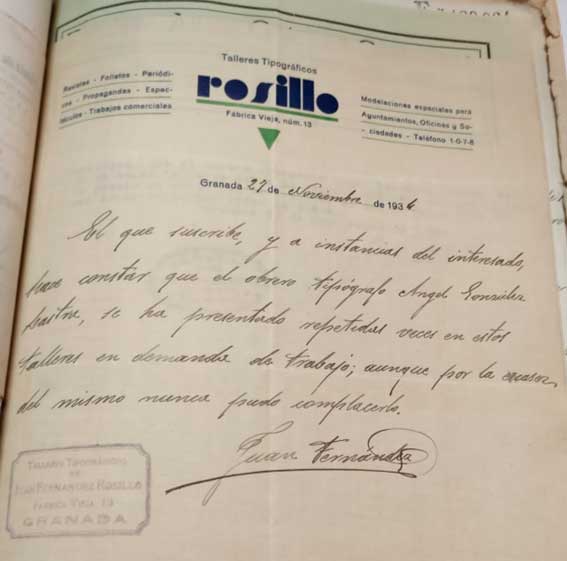 Talleres Tipográficos
rosillo
Fábrica Vieja, núm. 13
Revistas - Folletos - Periódi-
cos - Propagandas - Espec-
táculos - Trabajos comerciales
Modelaciones especiales para
Ayuntamientos, Oficinas y So-
- ciedades - Teléfono 1-0-7-8
Granada 27 de Noviembre de 1934.
El que suscribe, y a instancias del interesado,
hace constar que el obrero tipógrafo Angel González
Sastre, se ha presentado repetidas veces en estos
talleres en demanda de trabajo; aunque por la escasez
del mismo nunca pudo complacerlo.
Juan Fernández
TALLERES TIPOGRÁFICOS
DE
JUAN FERNANDEZ ROSILLO
FABRICA VIEJA 13
GRANADA